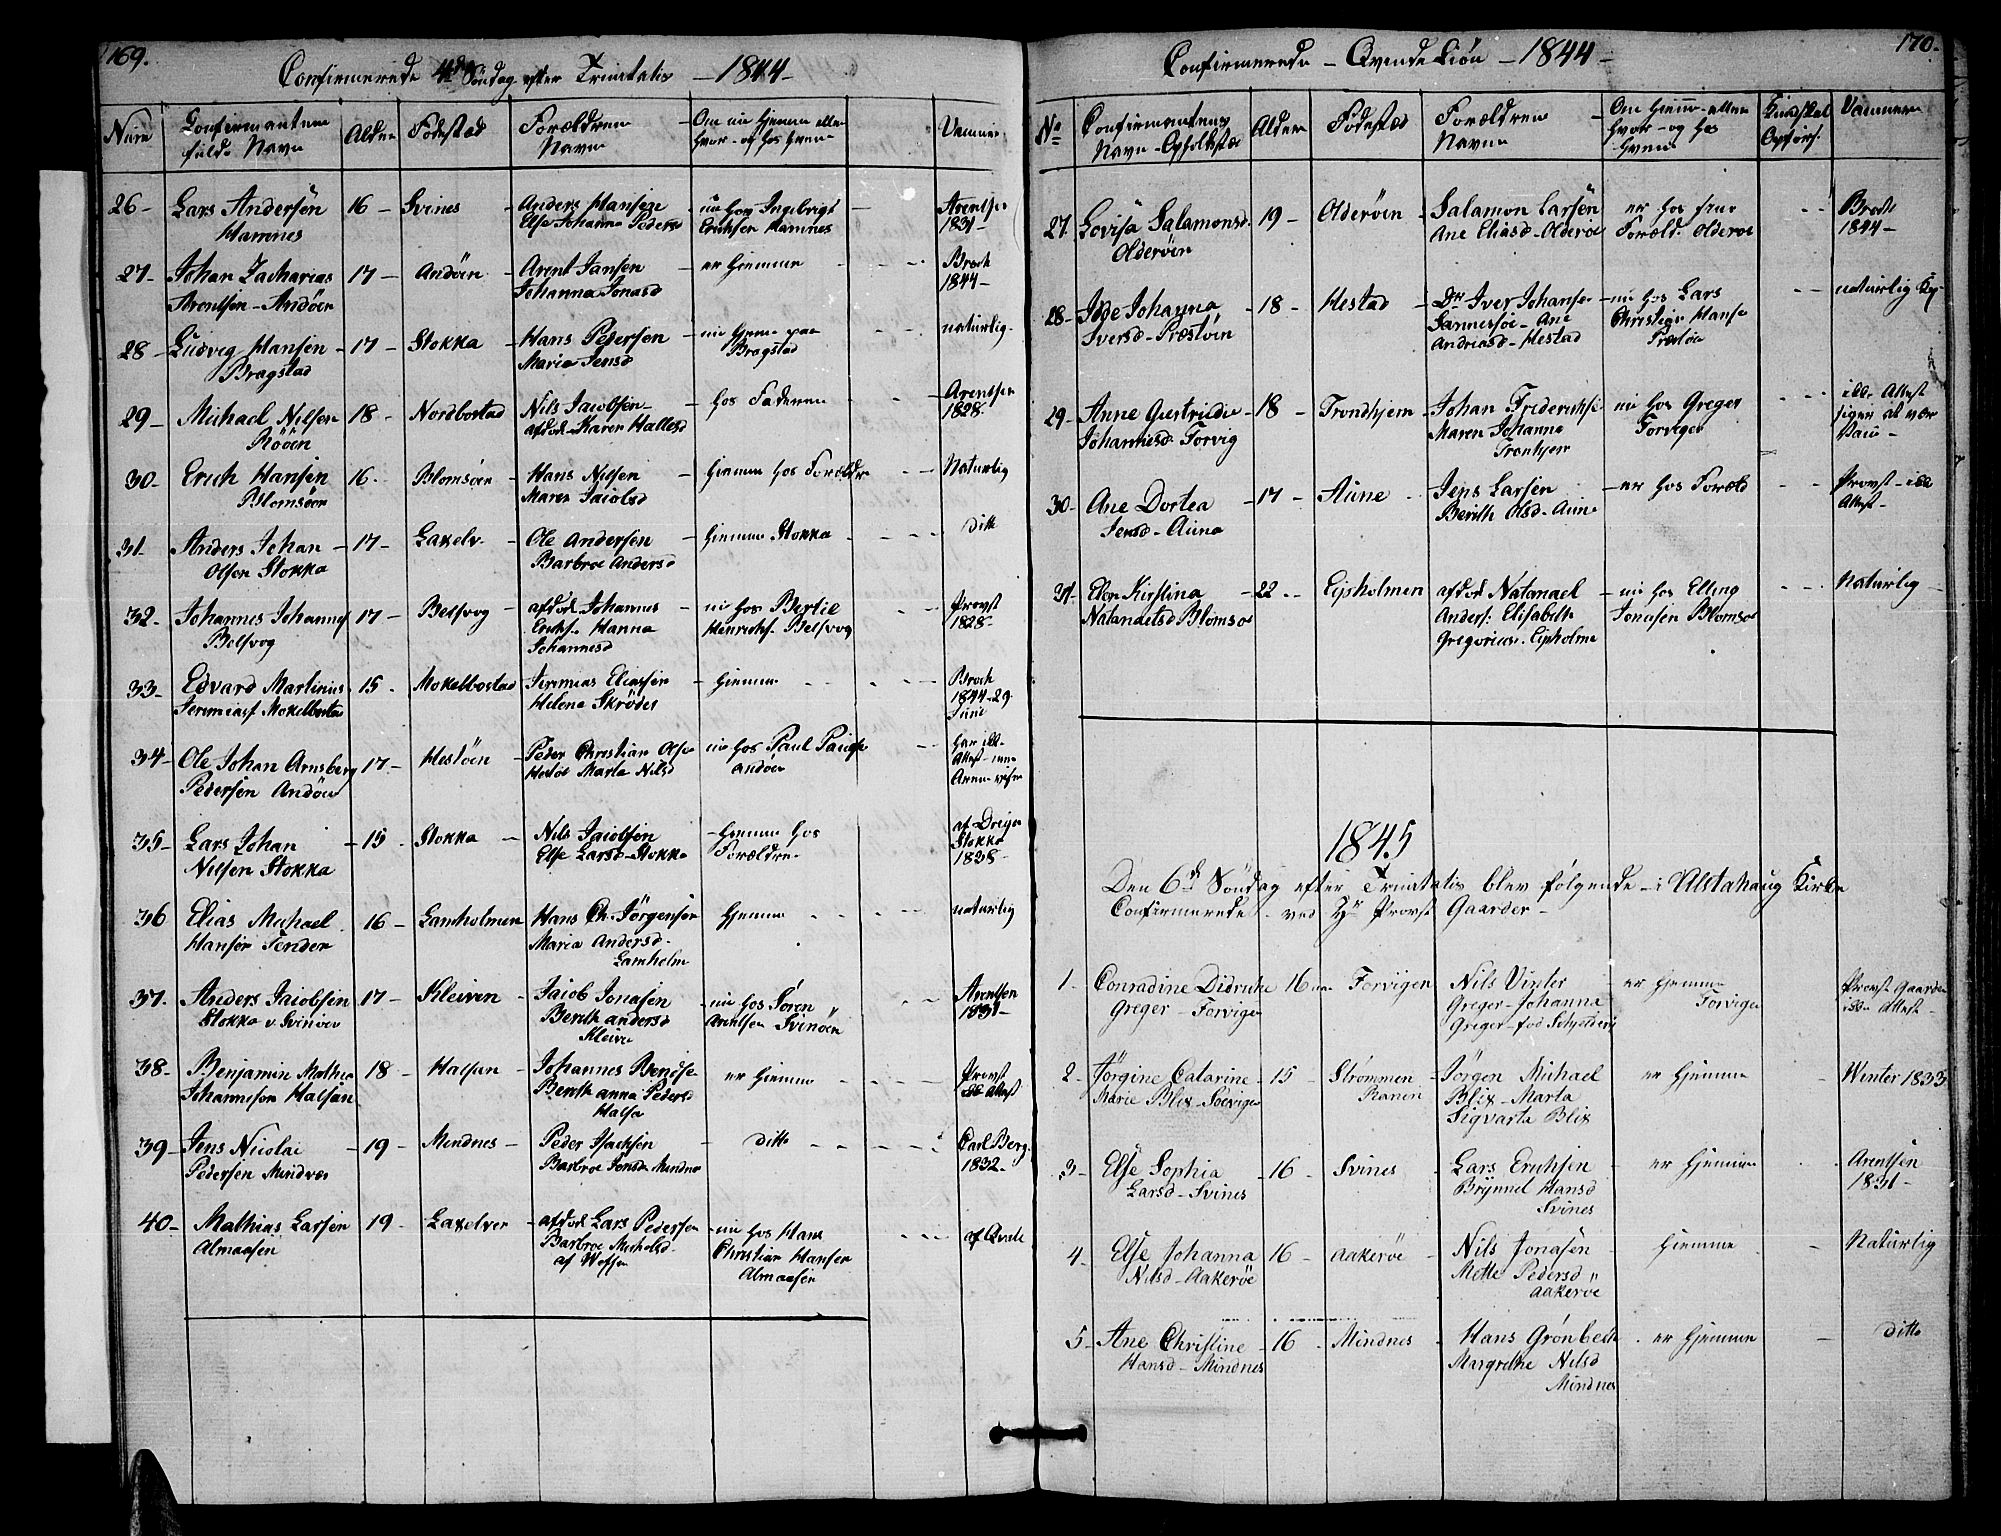 169.
Confirmerede 4de Söndag efter Trinitatis - 1844 -
Confirmantens
fulde Navn
Alder
Födested
Forældrenes
Navne
Om nu hjemme eller
hvor - og hos hvem
26 - Lars Andersön
Hamnes
16 - Svines
Anders Hansen
Else Johanna Pedersd
nu hos Ingebrigt
Erichsen Hamnes
Arentsen
1831 -
27 - Johan Zacharias
Arentsen - Andöen
17 - Andöen
Arent Jansen
Johanna Jonasd
er hjemme
Broch
1844 -
28 - Ludvig Hansen
Bragstad
17 - Stokka
Hans Pedersen
Maria Jensd
nu hjemme paa
Bragstad
naturlig -
29 - Michael Nilsen
Rööen
18 - Nordbostad
Nils Jacobsen
afdöde Karen Hallesd
hos Faderen
Arentsen
1828 -
30 - Erich Hansen
Blomsöen
16 - Blomsöen
Hans Nilsen
Maren Jacobsd
hjemme hos Forældre
Naturlig
31 - Anders Johan
Olsen Stokka
17 - Laxelv -
Ole Andersen
Barbroe Andersd
hjemme Stokka
ditto
32 - Johannes Johannes
Belsvog
17 - Belsvog
afdöd Johannes
Erichs. Hanna
Johannesd
nu hos Bertil
Henrichs. Belsvog
Provst
1828 -
33 - Edvard Martinus
Jeremiasf Mokelbostad
15 - Mokelbostad
Jeremias Eliassen
Helena Skröder
hjemme
Broch
1844 - 29
Juni
34 - Ole Johan Arnsberg
Pedersen Andöen
17 - Hestöen
Peder Christian Olsen
Hestöe Marta Nilsd
nu hos Paul
Andöen
har ikke
Attest
35 - Lars Johan
Nilsen Stokka
15 - Stokka
Nils Jacobsen
Else Larsd - Stokka
hjemme hos
Forældre
af Dreyer
Stokka
1838 -
36 Elias Michael
Hansen Tenden
16 - Lamholmen
Hans Ch. Jörgensen
Maria Andersd
Lamholm
hjemme
naturlig
37 - Anders Jacobsen
Stokka v. Svinöen
17 - Kleiven
Jacob Jonasen
Bereth Andersd
Kleiva
nu hos Sören
Arentsen Svinöen
Arentsen
1831 -
38 - Benjamin Mathia
Johannesen Halsan
18 - Halsan
Johannes Bendse
Bereth anna Pedersd
Halsa
er hjemme
Provst
ikke Attest
39 - Jens Nicolai
Pedersen Mindnes
19 - Mindnes -
Peder Isachsen
Barbroe Jensd Mindnes
ditto
Carl Berg
1832 -
40 - Mathias Larsen
Almaasen
19 - Laxelven
afdöd Lars Pedersen
Barbroe Michelsd
af Vefsen
nu hos Hans
Christian Hansen
Almaasen
170.
Confirmerede - Qvinde Kiön - 1844 -
No
Confirmantens
Navn - Opholdssted
Alder
Födested
Forældrenes
Navne
Om hjemme - eller
hvor - og hos
hvem
27. Lovisa Salamonsd.
Olderöen
19 - Olderöen
Salamon Larsen
Ane Eliasd - Olderöe
er hos sine
Foræld. Olderöe
Broch
1844 -
28 - Ide Johanna
Iversd - Præstöen
18 - Hestad
Iver Johanse
Sannessöe - Ane
Andreasd - Hestad
nu hos Lars
Christian Hanse
Præstöe
naturlig
29 - Anne Giertrude
Johannesd - Forvig
18 - Trondhjem
Johan Frederichse
Maren Johanna
Tronhjem
nu hos Greger
Forvigen
ikke Attest
30 - Ane Dortea
Jensd - Auna
17 - Aune
Jens Larsen
Bereth Olsd - Aune
er hos Foræld
Provst - ikke
Attest -
31 - Elen Kirstina
Natanaelsd Blomsöe
22 - Lipholmen
afdöd Natanael
Anders: Elisabeth
Gregorius - Lipholme
nu hos Elling
Jonasen Blomsöe
Naturlig
1845
Den 6te Söndag efter Trinitatis blev fölgende - i Alstahaug Kirke
Confirmerede - ved Hr Provst Gaarder -
1. Conradine Didricke
Greger - Forvigen
16 Forvigen
Nils Vinter
Greger - Johanna
Greger - föd Schjelderu
er hjemme
Forvigen
Provst Gaarder
ikke Attest -
2 - Jörgine Catarine
Marie Blix - Soevigen
15 - Strømmen
Ranen
Jörgen Michael
Blix - Marta
Sigvarta Blix
er hjemme
Winter 1833
3 - Else Sophia
Larsd - Svines
16 - Svines
Lars Erichsen
Brynnel Hansd
Svines
er hjemme
Arentsen
1831 -
4 - Else Johanna
Nilsd - Aakeröe
16 - Aakeröe
Nils Jonasen
Mette Pedersd
Aakeröe
hjemme
Naturlig
5 - Ane Christine
Hansd - Mindnes
16 - Mindnes
Hans Grönbech
Margrethe Nilsd
Mindnes
er hjemme
ditto